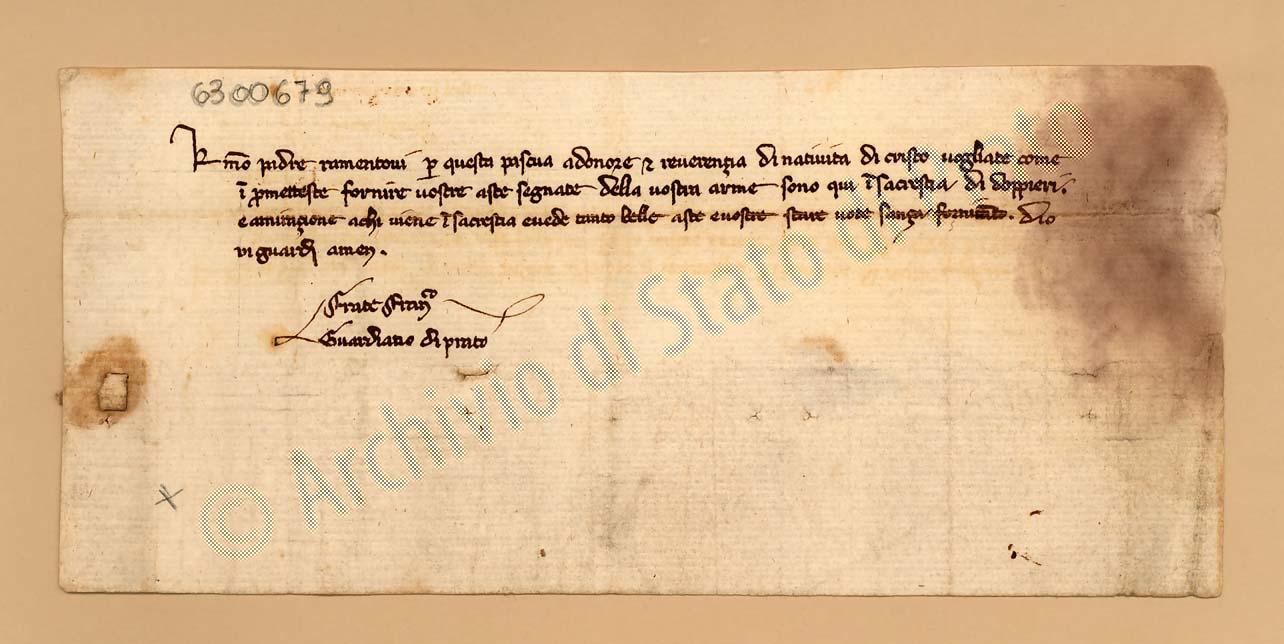 6300679
R mo padre ramentovi p questa pascua adonore et reverenzia di nativita di cristo vogliate come
i pmetteste fornire vostre aste segnate della vostra arme sono qui i sacrestia di doppieri.
e amirazione achi viene i sacrestia e vede tanto belle aste e vostre stare vote sanza fornimto. dio
vi guardi amen.
Frate Franco
Guardiano di prato
© Archivio di Stato di Prato